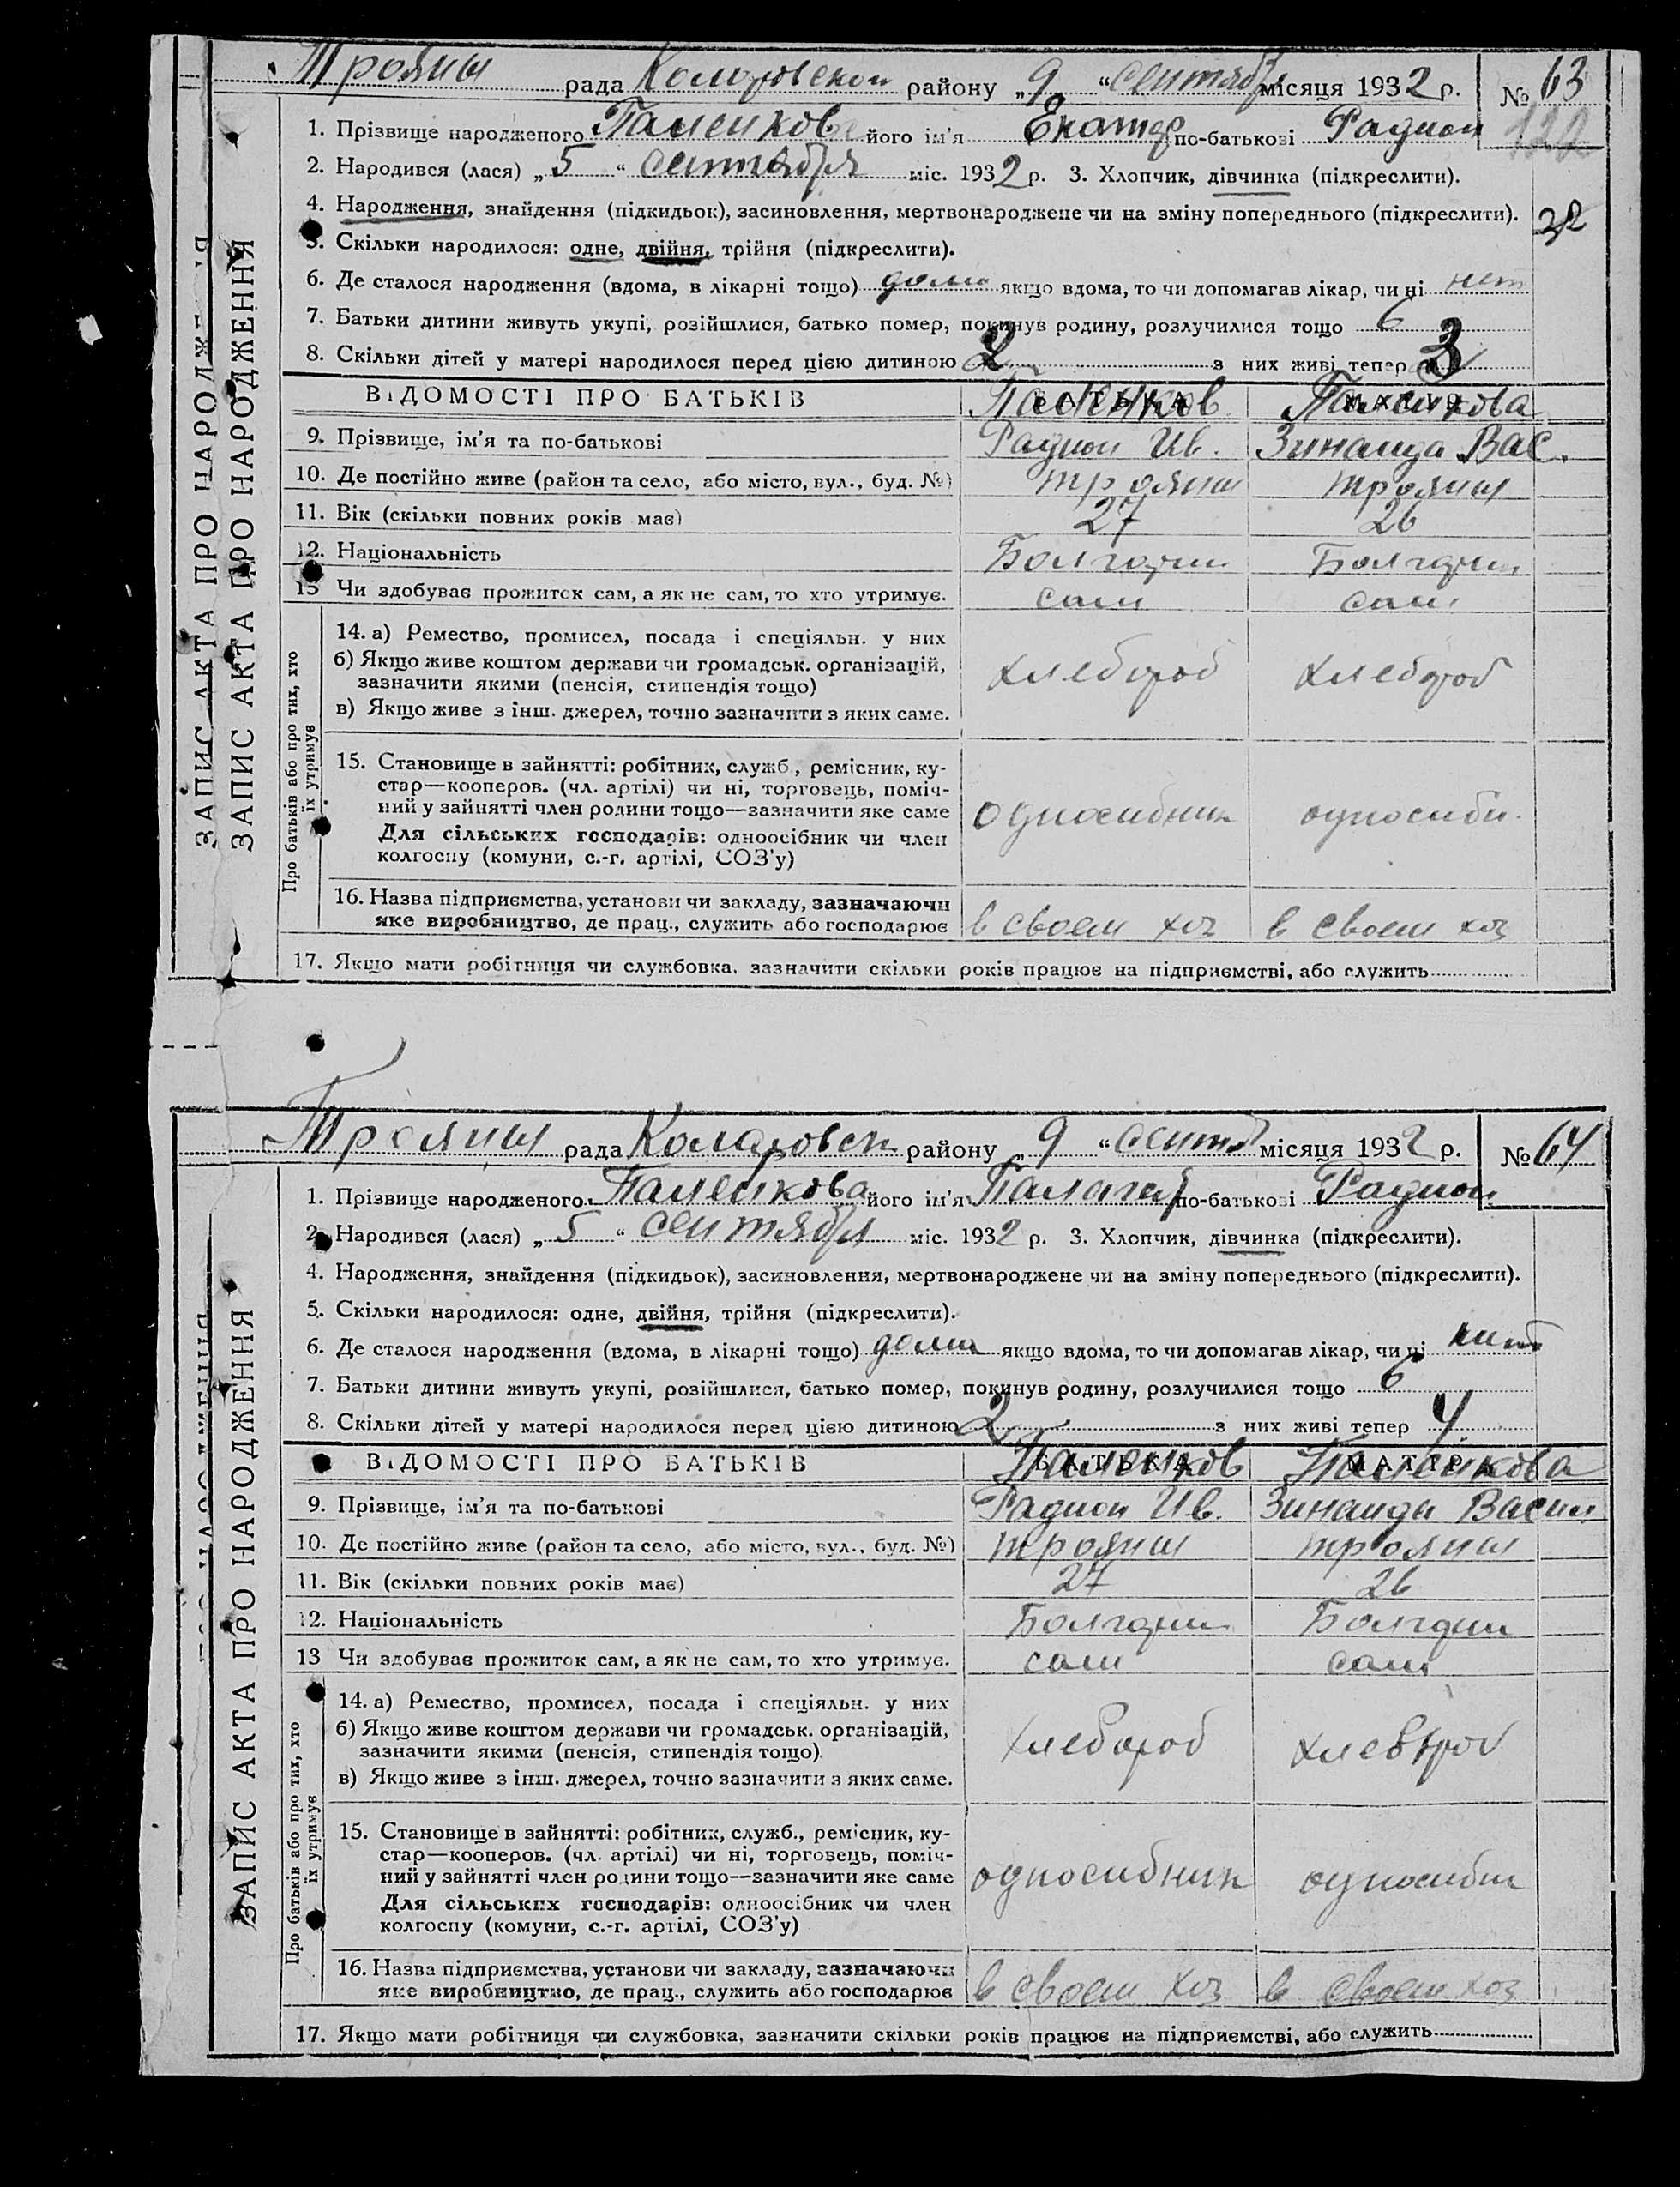 Трояны рада Коларовской району „9“ сентябр місяця 1932 р. № 63
122
1. Прізвище народженого Паненков його ім'я Екатер по-батькові Радион
2. Народився (лася) „5“ сентября міс. 1932 р. 3. Хлопчик, дівчинка (підкреслити).
4. Народження, знайдення (підкидьок), засиновлення, мертвонароджене чи на зміну попереднього (підкреслити).
32
5. Скільки народилося: одне, двійня, трійня (підкреслити).
6. Де сталося народження (вдома, в лікарні тощо) дома якщо вдома, то чи допомагав лікар, чи ні нет
7. Батьки дитини живуть укупі, розійшлися, батько помер, покинув родину, розлучилися тощо 6
8. Скільки дітей у матері народилося перед цією дитиною 2 з них живі тепер 3
ВІДОМОСТІ ПРО БАТЬКІВ БАТЬКА Паненков МАТІР Паненкова
9. Прізвище, ім'я та по-батькові Радион Ив. Зинаида Вас.
10. Де постійно живе (район та село, або місто, вул., буд. №) трояны трояны
11. Вік (скільки повних років має) 27 26
12. Національність Болгарин Болгарин
13 Чи здобуває прожиток сам, а як не сам, то хто утримує. сам сам
14. а) Ремество, промисел, посада і спеціяльн. у них
б) Якщо живе коштом держави чи громадськ. організацій,
зазначити якими (пенсія, стипендія тощо) хлебороб хлебороб
в) Якщо живе з інш. джерел, точно зазначити з яких саме.
15. Становище в зайнятті: робітник, служб., ремісник, ку-
стар—кооперов. (чл. артілі) чи ні, торговець, поміч-
ний у зайнятті член родини тощо—зазначити яке саме односибник односиби.
Для сільських господарів: одноосібник чи член
колгоспу (комуни, с.-г. артілі, СОЗ'у)
16. Назва підприємства, установи чи закладу, зазначаючи
яке виробництво, де прац., служить або господарює в своем хоз в своем хоз
17. Якщо мати робітниця чи службовка, зазначити скільки років працює на підприємстві, або служить
Про батьків або про тих, хто
їх утримує
ЗАПИС АКТА ПРО НАРОДЖЕННЯ
ЗАПИС АКТА ПРО НАРОДЖЕННЯ
Трояны рада Коларовск району „9“ сентяб місяця 1932 р. № 64
1. Прізвище народженого Паненкова його ім'я Палагея по-батькові Радион
2. Народився (лася) „5“ сентября міс. 1932 р. 3. Хлопчик, дівчинка (підкреслити).
4. Народження, знайдення (підкидьок), засиновлення, мертвонароджене чи на зміну попереднього (підкреслити).
5. Скільки народилося: одне, двійня, трійня (підкреслити).
6. Де сталося народження (вдома, в лікарні тощо) дома якщо вдома, то чи допомагав лікар, чи ні нит
7. Батьки дитини живуть укупі, розійшлися, батько помер, покинув родину, розлучилися тощо 6
8. Скільки дітей у матері народилося перед цією дитиною 2 з них живі тепер 4
ВІДОМОСТІ ПРО БАТЬКІВ БАТЬКА Паненков МАТІР Паненкова
9. Прізвище, ім'я та по-батькові Радион Ив. Зинаида Васил
10. Де постійно живе (район та село, або місто, вул., буд. №) трояны трояны
11. Вік (скільки повних років має) 27 26
12. Національність Болгарин Болгарин
13 Чи здобуває прожиток сам, а як не сам, то хто утримує. сам сам
14. а) Ремество, промисел, посада і спеціяльн. у них
б) Якщо живе коштом держави чи громадськ. організацій,
зазначити якими (пенсія, стипендія тощо). хлебороб хлебороб
в) Якщо живе з інш. джерел, точно зазначити з яких саме.
15. Становище в зайнятті: робітник, служб., ремісник, ку-
стар—кооперов. (чл. артілі) чи ні, торговець, поміч-
ний у зайнятті член родини тощо—зазначити яке саме односибник односибн
Для сільських господарів: одноосібник чи член
колгоспу (комуни, с.-г. артілі, СОЗ'у)
16. Назва підприємства, установи чи закладу, зазначаючи
яке виробництво, де прац., служить або господарює в своем хоз в своем хоз
17. Якщо мати робітниця чи службовка, зазначити скільки років працює на підприємстві, або служить
Про батьків або про тих, хто
їх утримує
ЗАПИС АКТА ПРО НАРОДЖЕННЯ